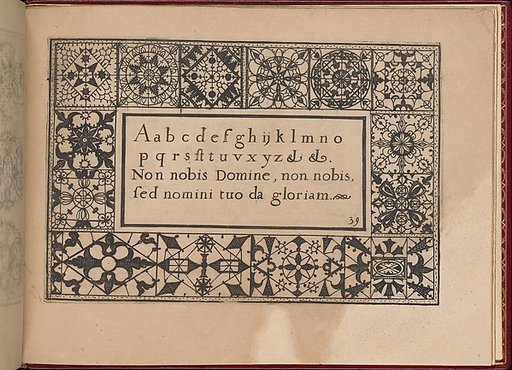 Aabcdefghijklmno
pqrsſtuvxyz& &.
Non nobis Domine, non nobis,
ſed nomini tuo da gloriam.
39